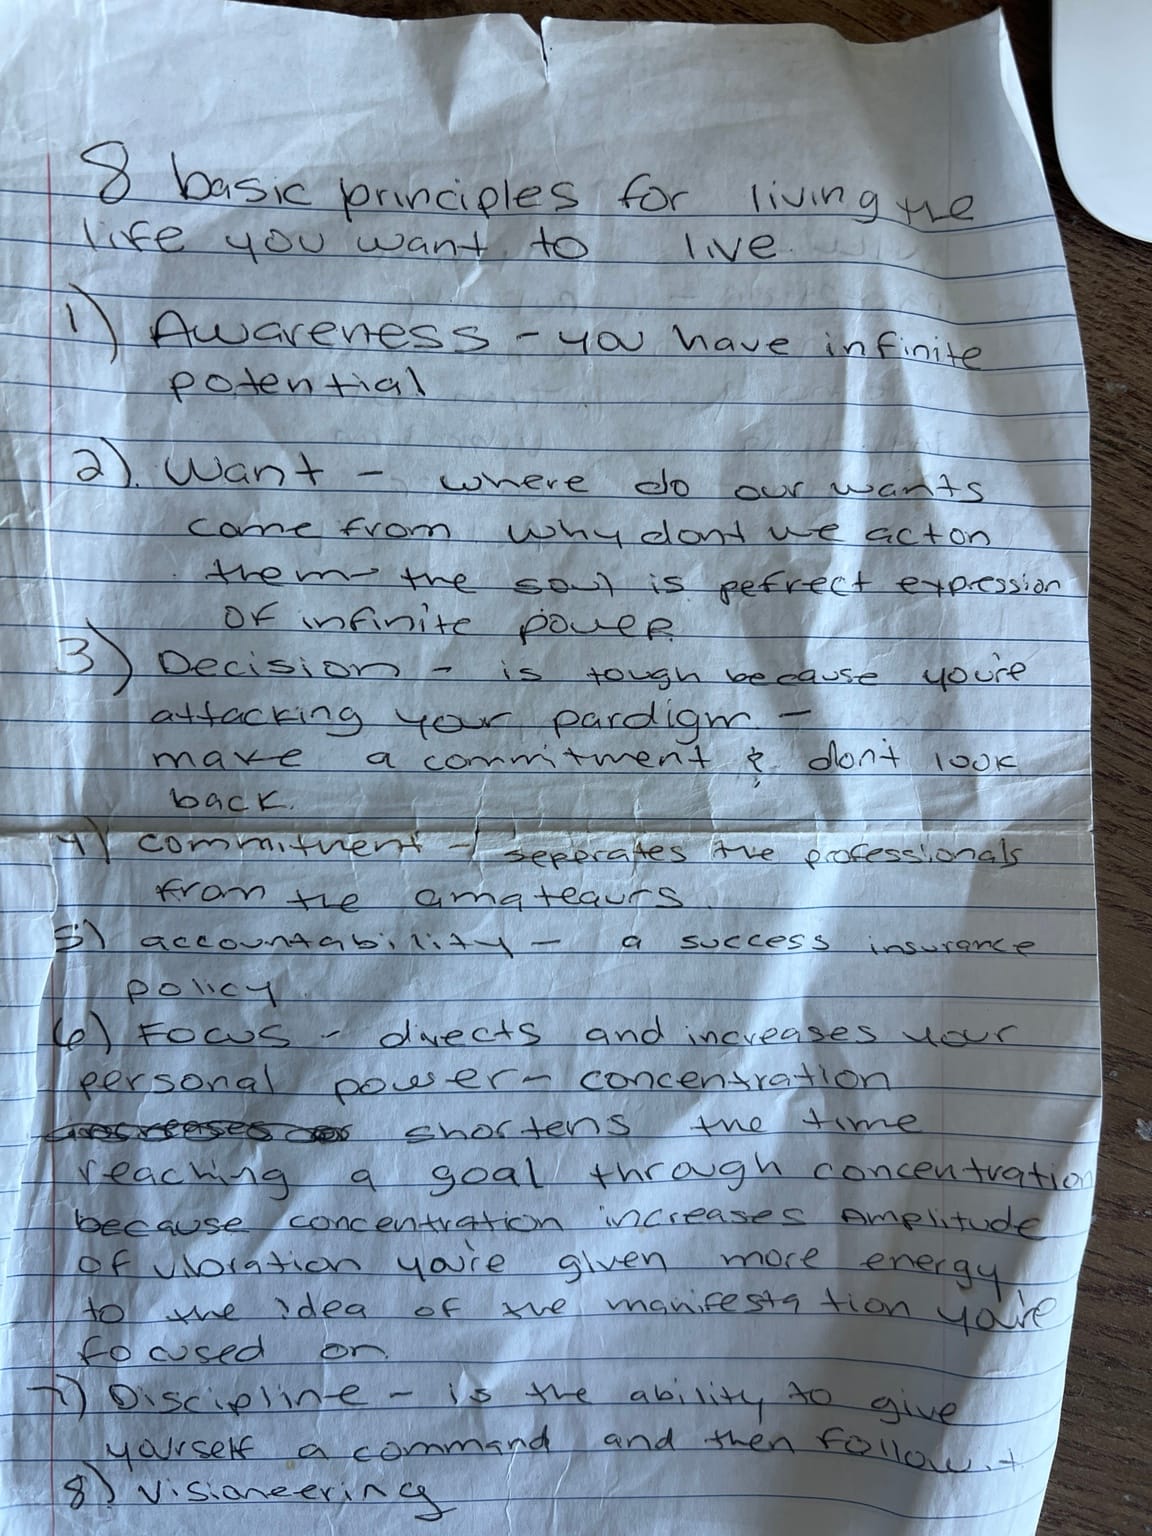 8 basic principles for living the
life you want to live.
1) Awareness - you have infinite
potential
2). Want - where do our wants
come from why dont we act on
them - the soul is pefrect expression
of infinite power.
3) Decision - is tough because you're
attacking your pardigm -
make a commitment & don't look
back.
4) commitment - seperates the professionals
from the amateaurs.
5) accountability - a success insurance
policy.
6) Focus - directs and increases your
personal power - concentration
shortens the time
reaching a goal through concentration
because concentration increases Amplitude
of vibration you're given more energy
to the idea of the manifestation you're
focused on.
7) Discipline - is the ability to give
yourself a command and then follow it
8) visioneering